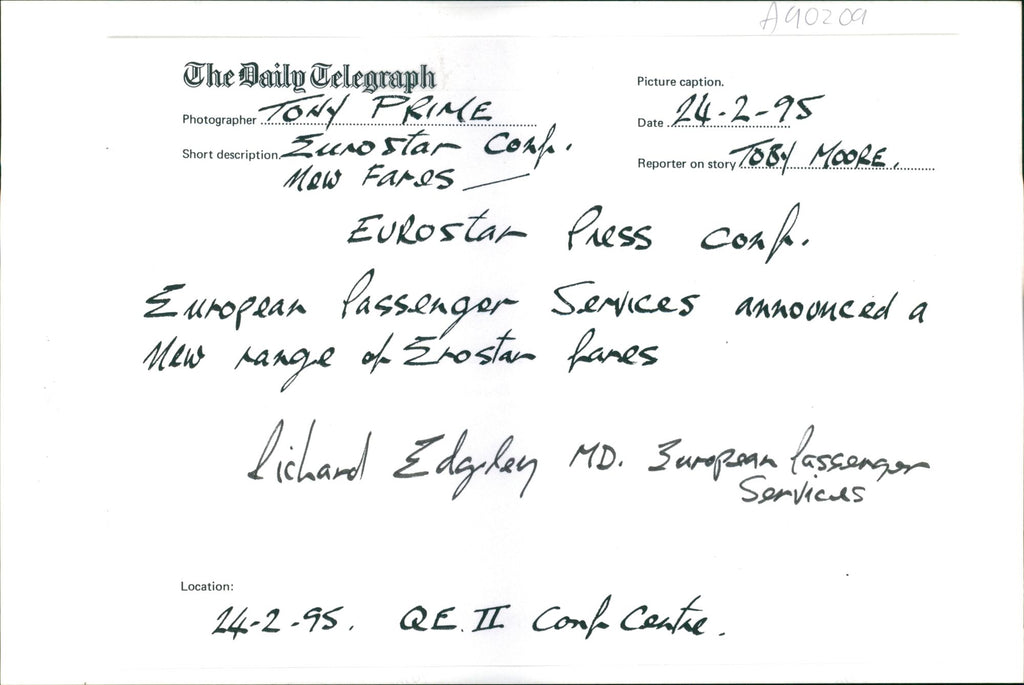 A90209
The Daily Telegraph
Picture caption.
Photographer TONY PRIME
Date 24-2-95
Short description. Eurostar Conf.
New Fares
Reporter on story TOBY MOORE.
EUROstar Press conf.
European Passenger Services announced a
New range of Erostar fares
Richard Edgley MD. European Passenger
Services
Location:
24-2-95. QE.II Conf Centre.